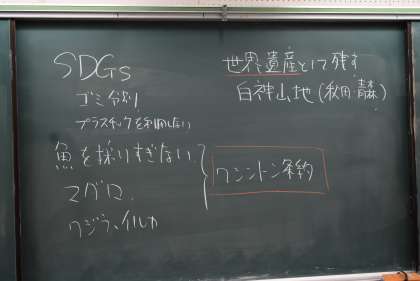 SDGs
ゴミ分別
プラスチックを利用しない
魚を採りすぎない
マグロ、
クジラ、イルカ
ワシントン条約
世界遺産として残す
白神山地(秋田・青森)